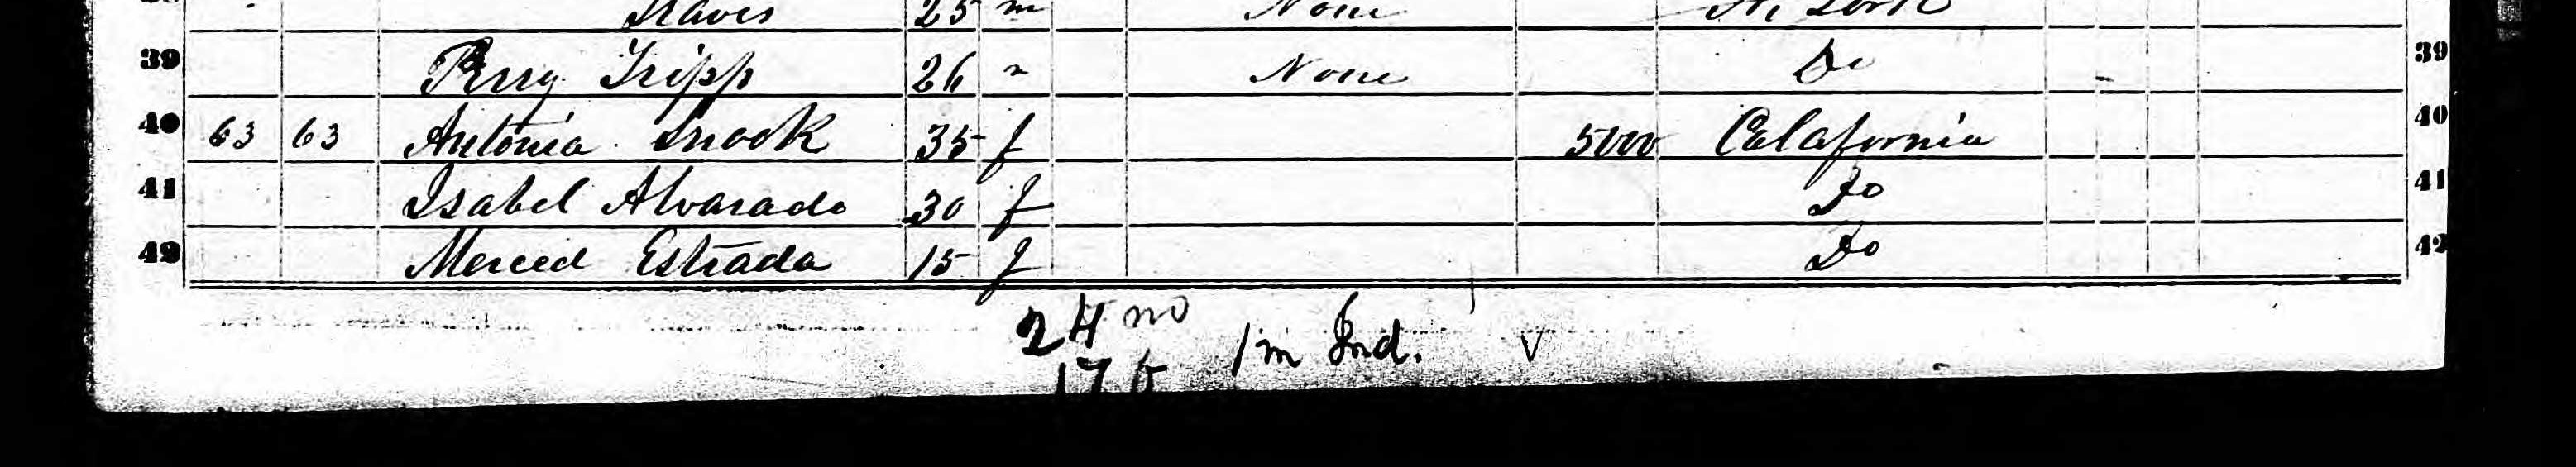 25 m None
39 Perry Tripp 26 m None Do 39
40 63 63 Antonia Snook 35 f 5000 Calafornia 40
41 Isabel Alvarado 30 f Do 41
42 Merced Estrada 15 f Do 42
24 m
17 f 1 m Ind. V